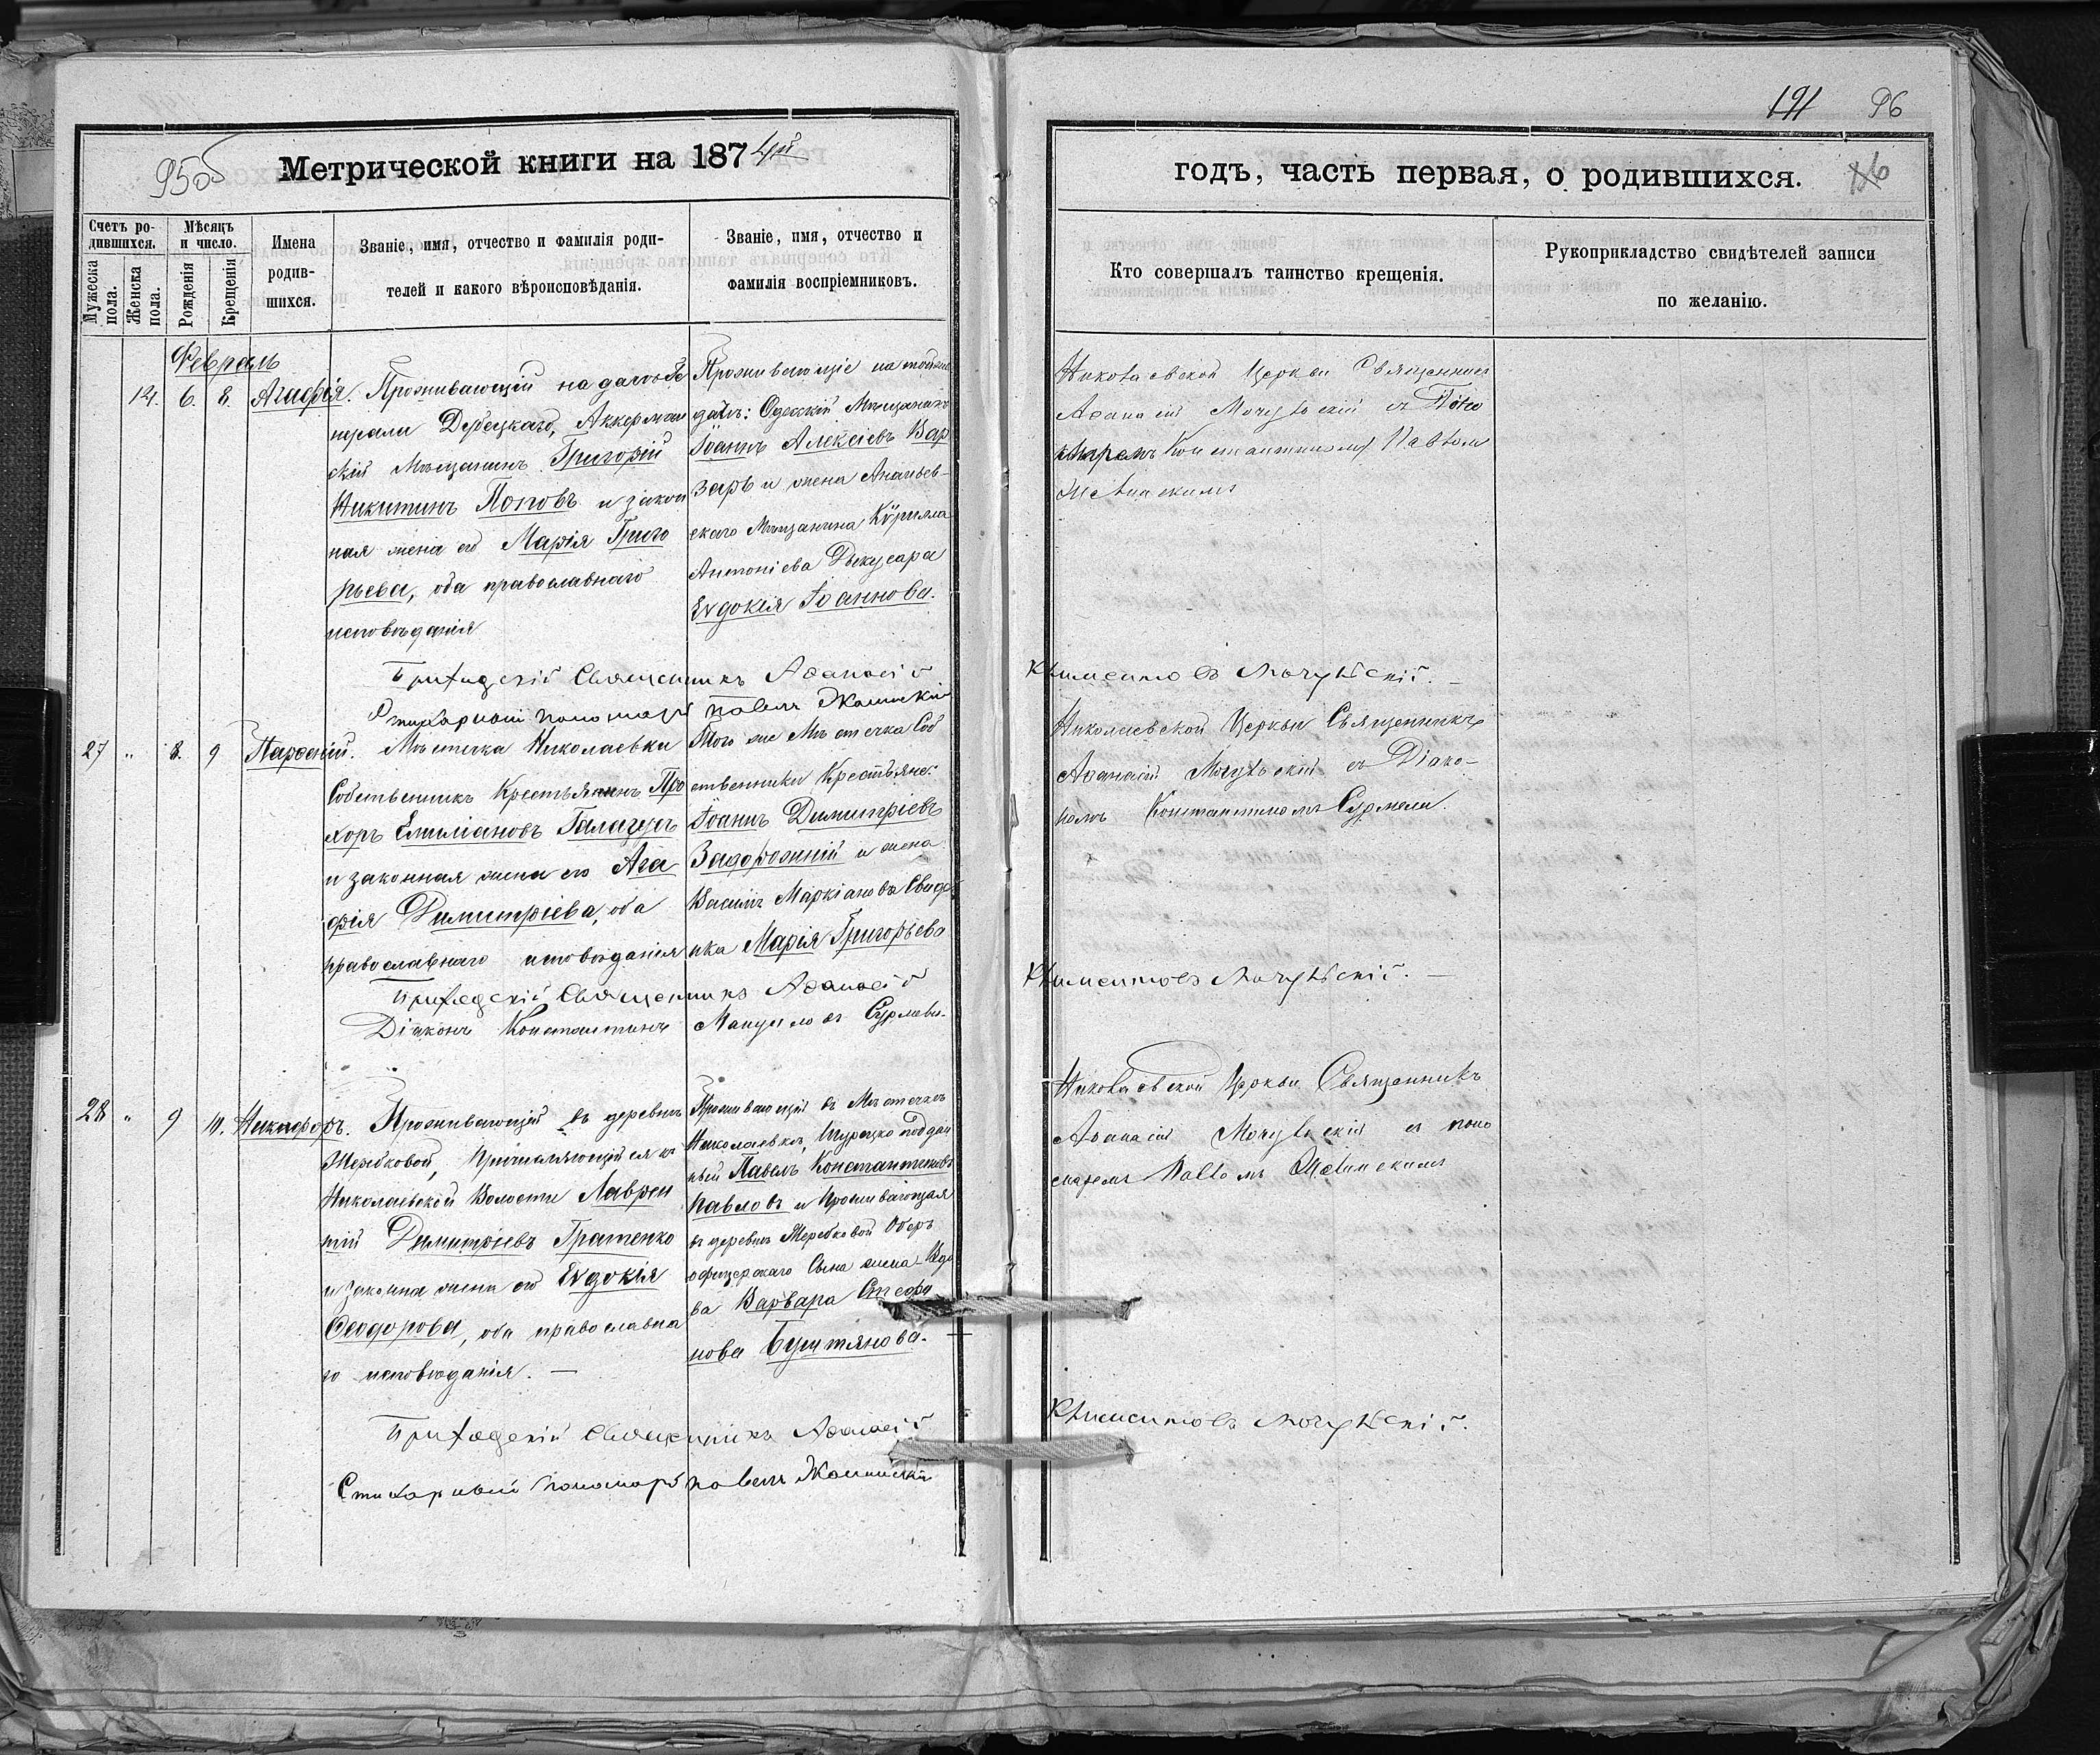 95об
Метрической книги на 1874й
Счетъ ро-
дившихся.
Мужеска
пола.
Женска
пола.
Мѣсяцъ
и число.
Рожденія
Крещенія
Имена
родив-
шихся.
Званіе, имя, отчество и фамилія роди-
телей и какого вѣроисповѣданія.
Званіе, имя, отчество и
фамилія воспріемниковъ.
Февраль
12. 6. 8. Агафія.
Проживающій на дачѣ
нерали Аккерман
скій Мѣщанинъ Григорій
Никитинъ Поповъ и закон
ная жена его Марія Григо
рьева, оба православнаго
исповѣданія
Проживающіе на той же
дачѣ: Одесскій Мѣщанинъ
Іоаннъ Алексіевъ Вар
зарь и жена Ананьев-
скаго Мѣщанина Кѵрилла
Антоніева
Еѵдокія Іоаннова.
Приходскій Священникъ Аѳанасій
Стихарный пономарь Павелъ
27 " 8. 9 Парѳеній.
Мѣстечка Николаевки
Собственникъ Крестьянинъ Про
хоръ Емиліановъ Галагуръ
и законная жена его Ага
фія Димитріева, оба
православнаго исповѣданія
Того же Мѣстечка Соб
ственники Крестьяне:
Іоаннъ Димитріевъ
Задорожній и жена
Василія Маркіанова
Марія Григорьева
Приходскій Священникъ Аѳанасій
Діаконъ Константинъ Мануиловъ Сурмели.
28 " 9 10. Никифоръ.
Проживающій въ деревнѣ
Жеребковой, причисляющійся къ
Николаевской Волости Лаврен
тій Димитріевъ Гратенко
и законна жена его Еѵдокія
Ѳеодорова, оба православна
го исповѣданія. —
Проживающій въ Мѣстечкѣ
Николаевкѣ, Турецко поддан
ный Павелъ Константиновъ
Павловъ и проживающая
въ деревнѣ Жеребковой Оберъ
офицерскаго Сына жена Вдо
ва Варвара Стефа
нова
Приходскій Священникъ Аѳанасій
Стихарный пономарь Павелъ
191 96
годъ, часть первая, о родившихся.
Кто совершалъ таинство крещенія.
Рукоприкладство свидѣтелей записи
по желанію.
Николаевской Церкви Священникъ
Аѳанасій Мочульскій съ Поно
маремъ Константиномъ Павлом
Климентовъ Мочульскій. —
Николаевской Церкви Священникъ
Аѳанасій Мочульскій съ Діако-
номъ Константиномъ Сурмели.
Климентовъ Мочульскій. —
Николаевской Церкви Священникъ
Аѳанасій Мочульскій съ поно
маремъ Павломъ
Климентовъ Мочульскій.